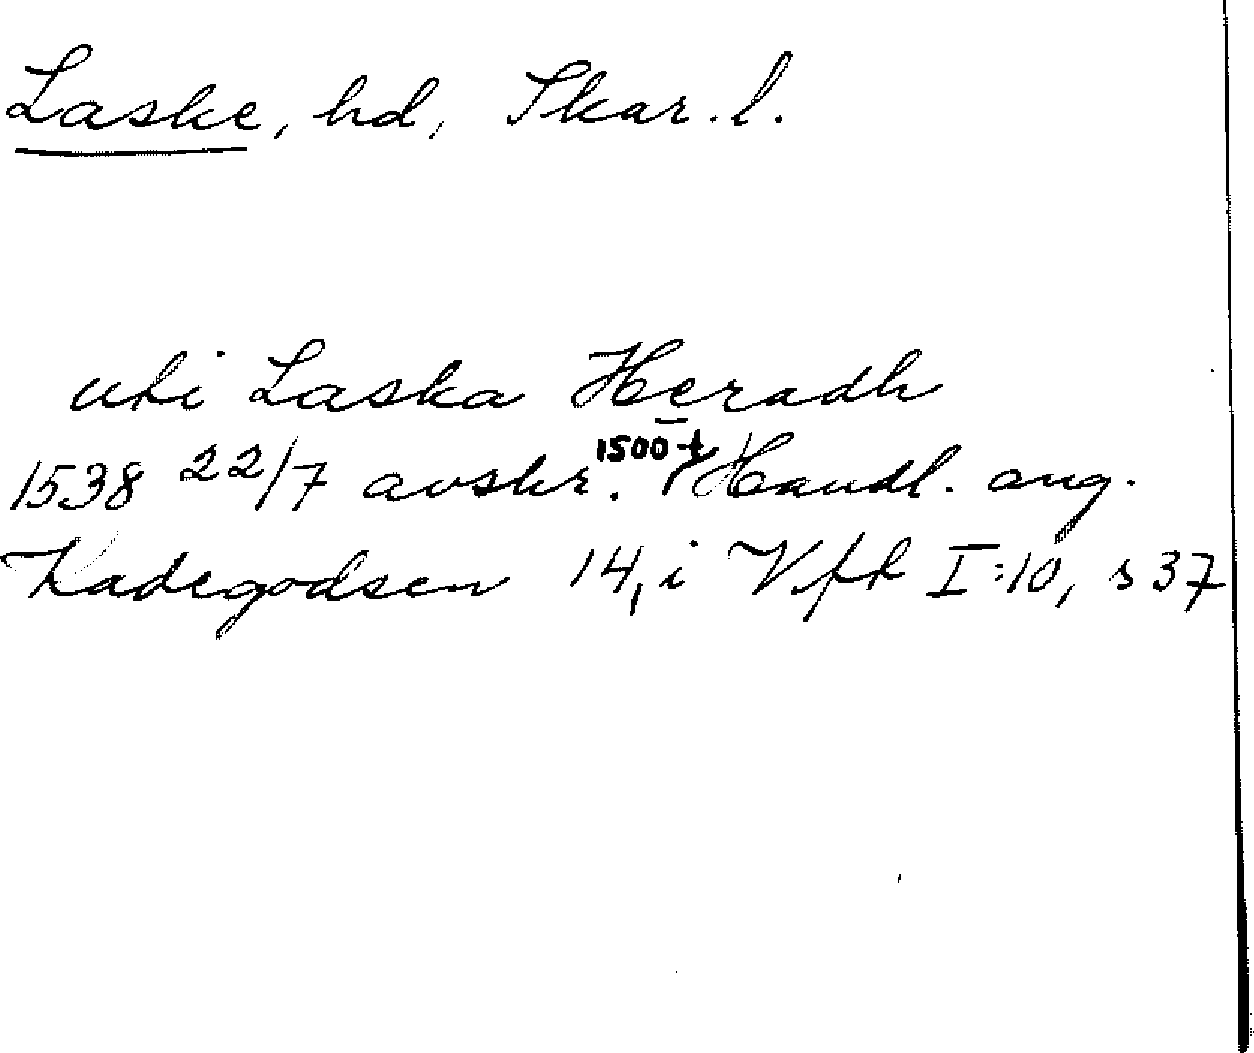 Laske, hd, Skar. l.
uti Laska Heradh
1538 22/7 avskr. 1500-t Handl. ang.
Kadegodsen 14, i Vfft I:10, s 37